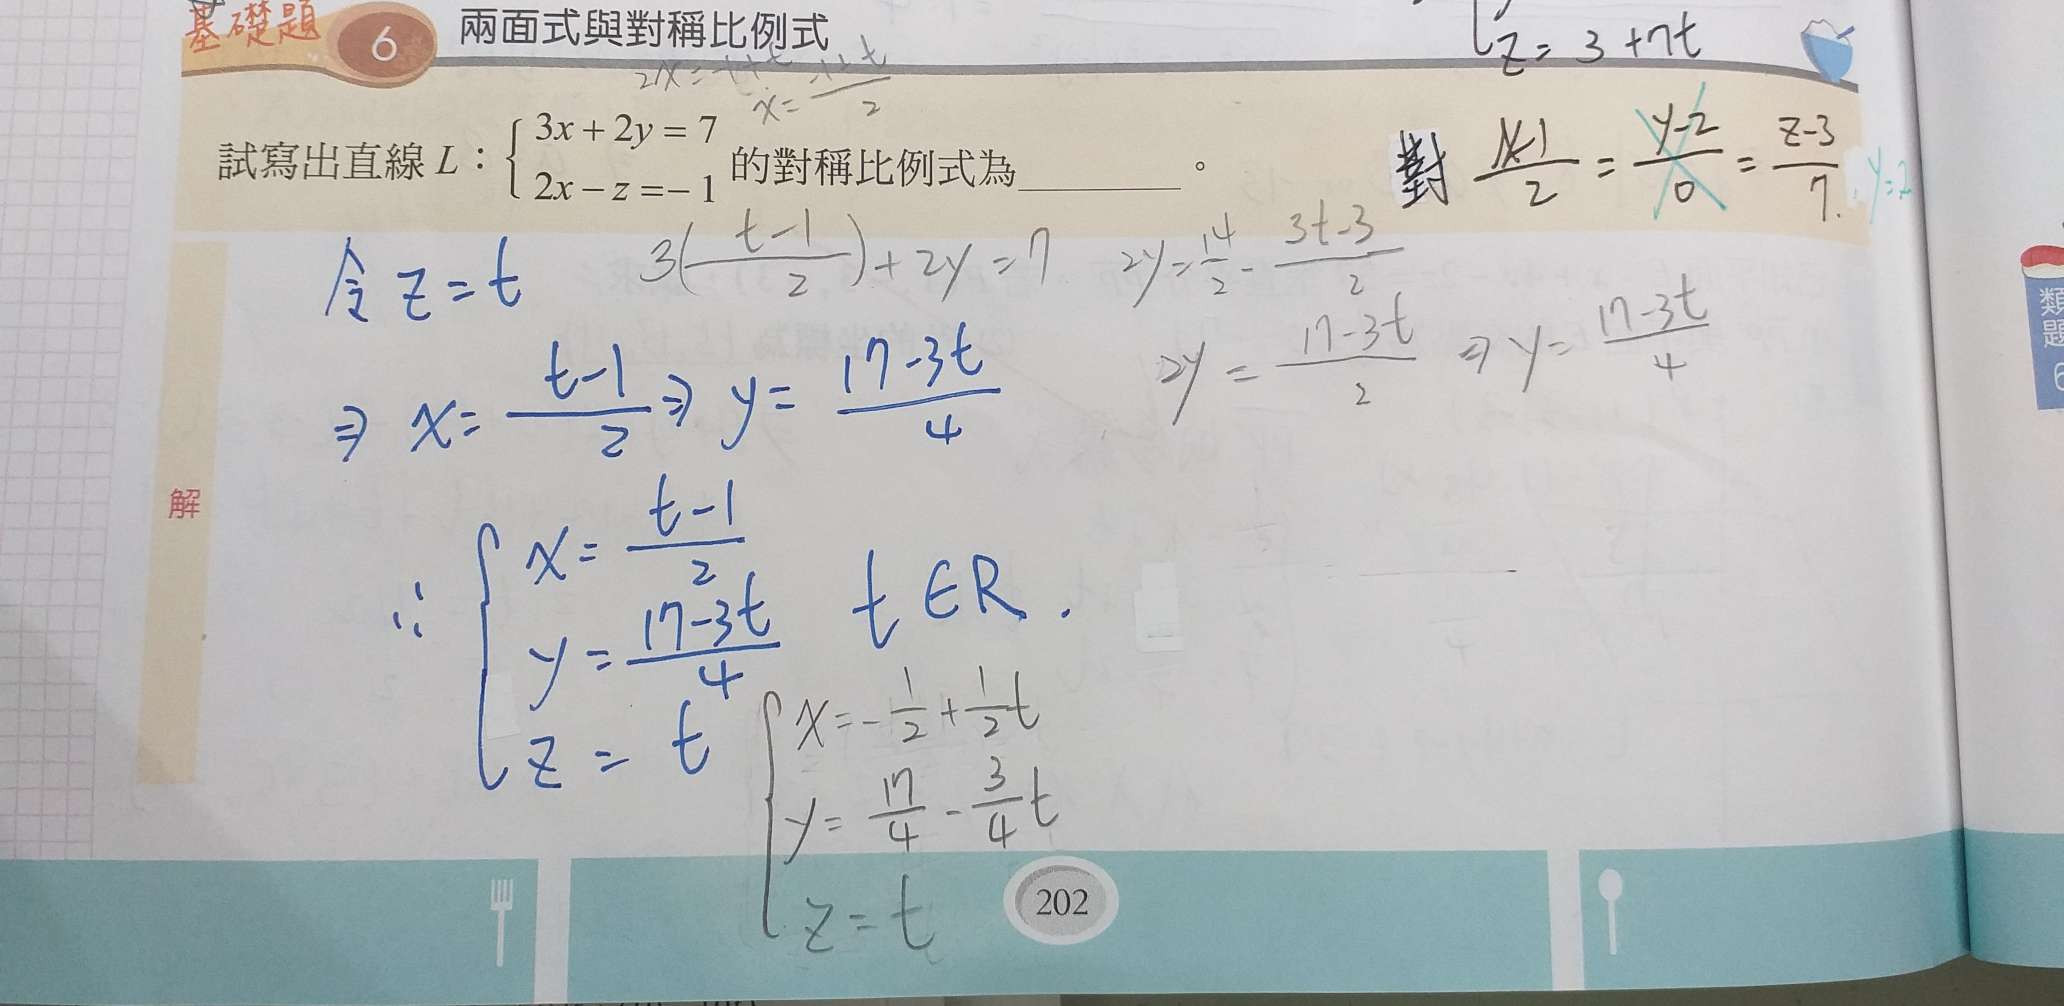 基礎題 6 兩面式與對稱比例式
z = 3 + 7t
x =
2
試寫出直線 L : { 3x + 2y = 7
2x − z = − 1 的對稱比例式為________。
對 x-1/2 = y-2/0 = z-3/7 , y=2
令 z = t
3(t-1/2) + 2y = 7
2y = 14/2 - 3t-3/2
2y = 17-3t/2 ⇒ y = 17-3t/4
⇒ x = t-1/2 ⇒ y = 17-3t/4
解
∴ { x = t-1/2
y = 17-3t/4 t ∈ R .
z = t
{ x = -1/2 + 1/2 t
y = 17/4 - 3/4 t
z = t
202
類題 6